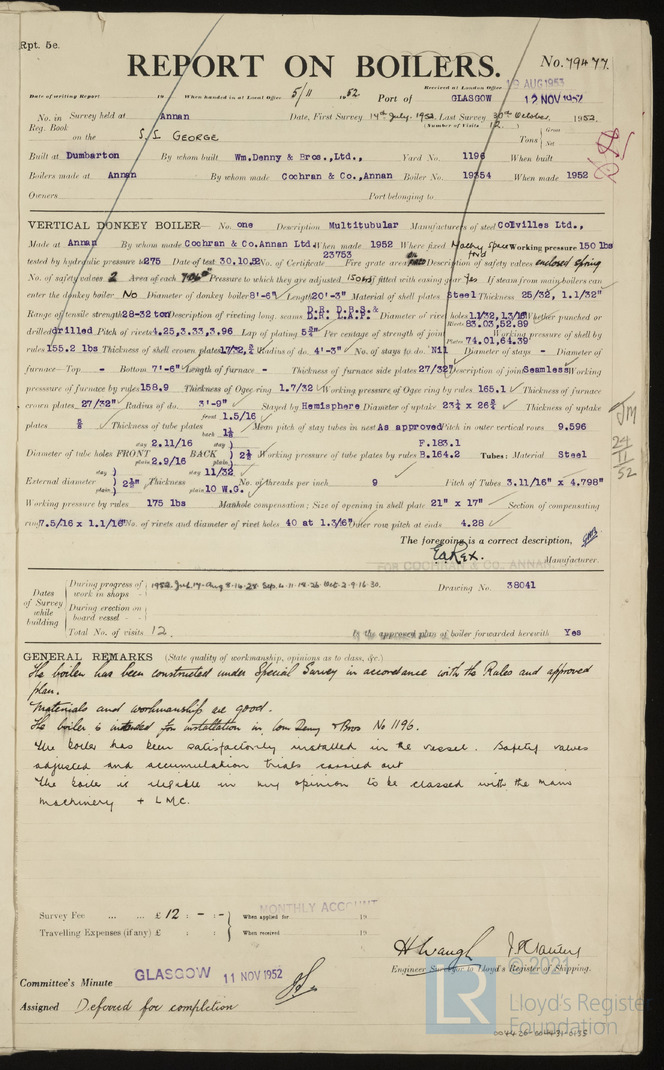 Rpt. 5c.
REPORT ON BOILERS.
No. 79477.
Received at London Office 19 AUG 1953
Date of writing Report 19 When handed in at Local Office 5/11 1952. Port of GLASGOW 12 NOV 1952
No. in Survey held at Annan Date, First Survey 14th July. 1952. Last Survey 30th October. 1952.
Reg. Book (Number of Visits 12.)
on the S.S GEORGE Tons { Gross Net
Built at Dumbarton By whom built Wm.Denny & Bros.,Ltd., Yard No. 1196 When built
Boilers made at Annan By whom made Cochran & Co.,Annan Boiler No. 19354 When made 1952
Owners Port belonging to
VERTICAL DONKEY BOILER No. one Description Multitubular Manufacturers of steel Colvilles Ltd.,
Made at Annan By whom made Cochran & Co.Annan Ltd. When made 1952 Where fixed Machy Space Working pressure 150 lbs
tested by hydraulic pressure to 275 Date of test 30.10.52 No. of Certificate 23753 Fire grate area Description of safety valves enclosed spring
No. of safety valves 2 Area of each Pressure to which they are adjusted 150 lbs fitted with easing gear Yes If steam from main boilers can
enter the donkey boiler No Diameter of donkey boiler 8'-6" Length 20'-3" Material of shell plates Steel Thickness 25/32, 1.1/32"
Range of tensile strength 28-32 ton Description of riveting long. seams D.R. D.B.S.& D.R. LAP. Diameter of rivet holes 1.1/32, 1.3/16 Whether punched or
drilled drilled Pitch of rivets 4.25,3.33,3.96 Lap of plating 5¾" Per centage of strength of joint Rivets 83.03,52.89 Plates 74.01,64.39 Working pressure of shell by
rules 155.2 lbs Thickness of shell crown plates 17/32,¾ Radius of do. 4'-3" No. of stays to do. Nil Diameter of stays - Diameter of
furnace—Top - Bottom 7'-6" Length of furnace - Thickness of furnace side plates 27/32" Description of joint Seamless Working
pressure of furnace by rules 158.9 Thickness of Ogee ring 1.7/32 Working pressure of Ogee ring by rules 165.1 Thickness of furnace
crown plates 27/32" Radius of do. 3'-9" Stayed by Hemisphere Diameter of uptake 23¼ x 26¾ Thickness of uptake
plates ⅝ Thickness of tube plates front 1.5/16 back 1⅛ Mean pitch of stay tubes in nest As approved Pitch in outer vertical rows 9.596
Diameter of tube holes FRONT stay 2.11/16 plain 2.9/16 BACK stay plain } 2½ Working pressure of tube plates by rules F.183.1 B.164.2 Tubes: Material Steel
External diameter stay plain } 2½" Thickness stay 11/32 plain 10 W.G. No. of threads per inch 9 Pitch of Tubes 3.11/16" x 4.798"
Working pressure by rules 175 lbs Manhole compensation: Size of opening in shell plate 21" x 17" Section of compensating
ring 7.5/16 x 1.1/16" No. of rivets and diameter of rivet holes 40 at 1.3/16" Outer row pitch at ends 4.28
The foregoing is a correct description,
FOR COCHRAN & CO., ANNAN Manufacturer.
Dates of Survey while building
During progress of work in shops - - 1952. Jul. 14- Aug 8-14-28 Sep. 4-11-18-26 Oct. 2-9-16-30. Drawing No. 38041
During erection on board vessel - - -
Total No. of visits 12. Is the approved plan of boiler forwarded herewith Yes
GENERAL REMARKS (State quality of workmanship, opinions as to class, &c.)
The boiler has been constructed under Special Survey in accordance with the Rules and approved
plan.
Materials and workmanship are good.
The boiler is intended for installation in Wm Denny & Bros No 1196.
The boiler has been satisfactorily installed in the vessel. Safety valves
adjusted and accumulation trials carried out
The boiler is eligible in my opinion to be classed with the main
machinery + LMC.
JM
24
11
52
MONTHLY ACCOUNT
Survey Fee ... ... £ 12 : - : - When applied for 19
Travelling Expenses (if any) £ : : When received 19
H Waugh
Engineer Surveyor to Lloyd's Register of Shipping.
Committee's Minute GLASGOW 11 NOV 1952
Assigned Deferred for completion
© 2021
LR
Lloyd's Register
Foundation
004426-004431-0135